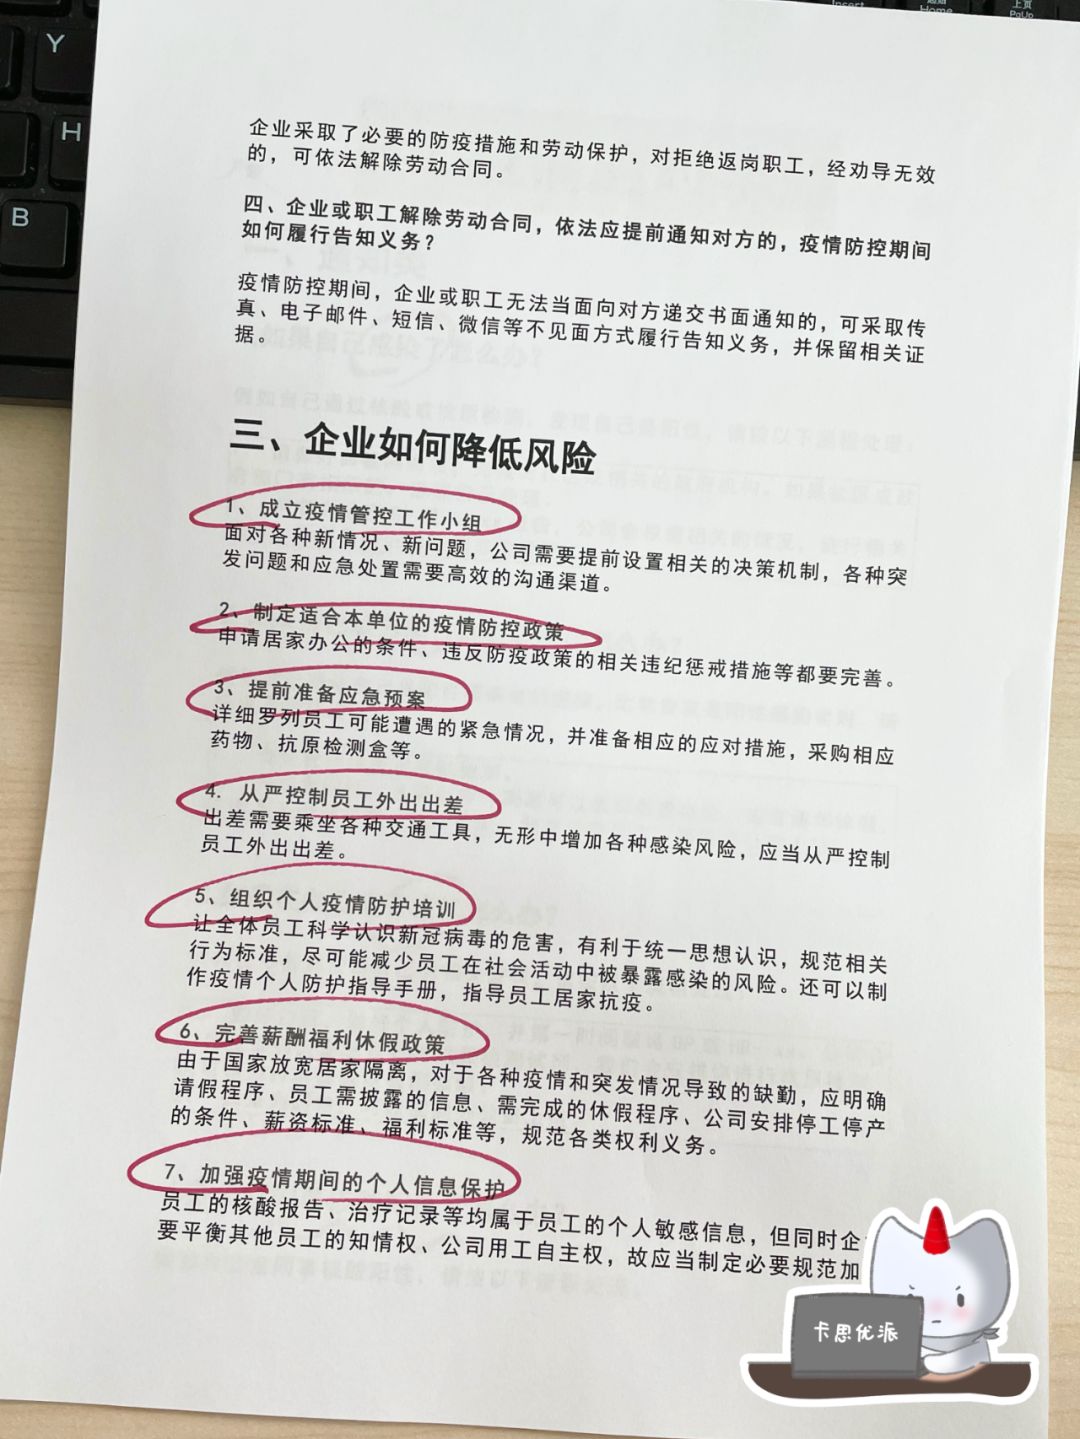 Y
H
B
Insert
Home
上页
PgUp
企业采取了必要的防疫措施和劳动保护，对拒绝返岗职工，经劝导无效
的，可依法解除劳动合同。
四、企业或职工解除劳动合同，依法应提前通知对方的，疫情防控期间
如何履行告知义务？
疫情防控期间，企业或职工无法当面向对方递交书面通知的，可采取传
真、电子邮件、短信、微信等不见面方式履行告知义务，并保留相关证
据。
三、企业如何降低风险
1、成立疫情管控工作小组
面对各种新情况、新问题，公司需要提前设置相关的决策机制，各种突
发问题和应急处置需要高效的沟通渠道。
2、制定适合本单位的疫情防控政策
申请居家办公的条件、违反防疫政策的相关违纪惩戒措施等都要完善。
3、提前准备应急预案
详细罗列员工可能遭遇的紧急情况，并准备相应的应对措施，采购相应
药物、抗原检测盒等。
4. 从严控制员工外出出差
出差需要乘坐各种交通工具，无形中增加各种感染风险，应当从严控制
员工外出出差。
5、组织个人疫情防护培训
让全体员工科学认识新冠病毒的危害，有利于统一思想认识，规范相关
行为标准，尽可能减少员工在社会活动中被暴露感染的风险。还可以制
作疫情个人防护指导手册，指导员工居家抗疫。
6、完善薪酬福利休假政策
由于国家放宽居家隔离，对于各种疫情和突发情况导致的缺勤，应明确
请假程序、员工需披露的信息、需完成的休假程序、公司安排停工停产
的条件、薪资标准、福利标准等，规范各类权利义务。
7、加强疫情期间的个人信息保护
员工的核酸报告、治疗记录等均属于员工的个人敏感信息，但同时企
要平衡其他员工的知情权、公司用工自主权，故应当制定必要规范加
卡思优派